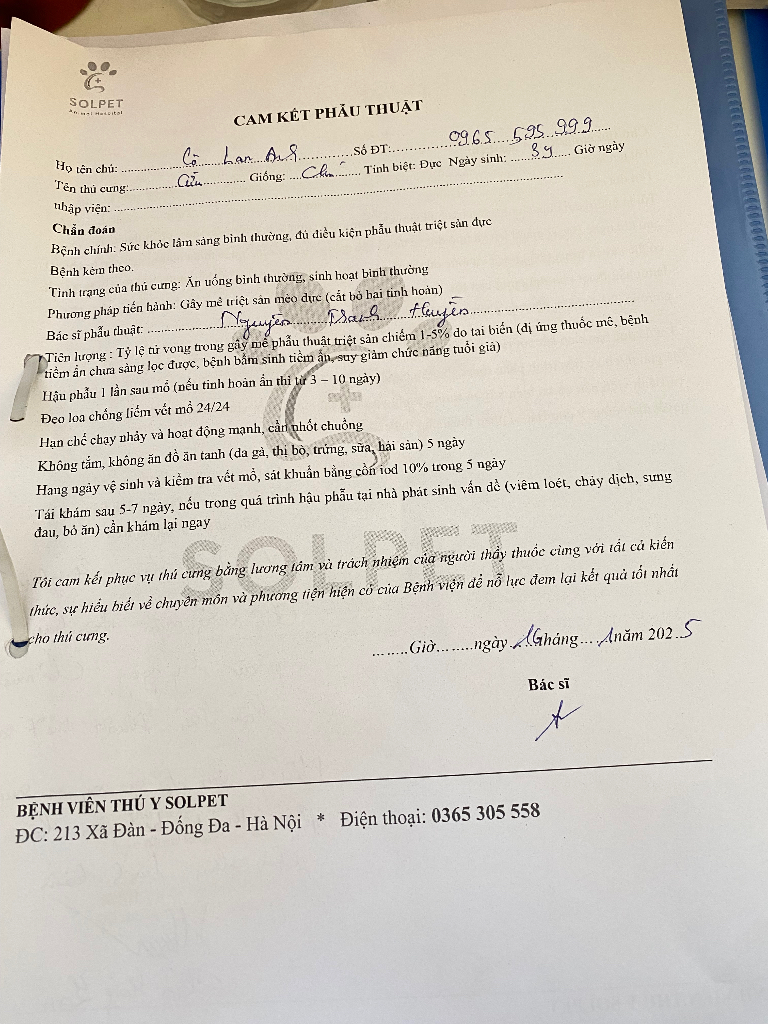 SOLPET
Animal Hospital
CAM KẾT PHẪU THUẬT
Họ tên chủ: Cô Lan Anh Số ĐT: 0965 595 999
Tên thú cưng: Giống: Chó Tính biệt: Đực Ngày sinh: 3y Giờ ngày
nhập viện:
Chẩn đoán
Bệnh chính: Sức khỏe lâm sàng bình thường, đủ điều kiện phẫu thuật triệt sản đực
Bệnh kèm theo.
Tình trạng của thú cưng: Ăn uống bình thường, sinh hoạt bình thường
Phương pháp tiến hành: Gây mê triệt sản mèo đực (cắt bỏ hai tinh hoàn)
Bác sĩ phẫu thuật: Nguyễn Thanh Huyền
Tiên lượng : Tỷ lệ tử vong trong gây mê phẫu thuật triệt sản chiếm 1-5% do tai biến (dị ứng thuốc mê, bệnh
tiềm ẩn chưa sàng lọc được, bệnh bẩm sinh tiềm ẩn, suy giảm chức năng tuổi già)
Hậu phẫu 1 lần sau mổ (nếu tinh hoàn ẩn thì từ 3 – 10 ngày)
Đeo loa chống liếm vết mổ 24/24
Hạn chế chạy nhảy và hoạt động mạnh, cần nhốt chuồng
Không tắm, không ăn đồ ăn tanh (da gà, thị bò, trứng, sữa, hải sản) 5 ngày
Hang ngày vệ sinh và kiểm tra vết mổ, sát khuẩn bằng cồn iod 10% trong 5 ngày
Tái khám sau 5-7 ngày, nếu trong quá trình hậu phẫu tại nhà phát sinh vấn đề (viêm loét, chảy dịch, sưng
đau, bỏ ăn) cần khám lại ngay
SOLPET
Tôi cam kết phục vụ thú cưng bằng lương tâm và trách nhiệm của người thầy thuốc cùng với tất cả kiến
thức, sự hiểu biết về chuyên môn và phương tiện hiện có của Bệnh viện để nỗ lực đem lại kết quả tốt nhất
cho thú cưng.
........Giờ........ngày 16 tháng 1 năm 2025
Bác sĩ
BỆNH VIÊN THÚ Y SOLPET
ĐC: 213 Xã Đàn - Đống Đa - Hà Nội * Điện thoại: 0365 305 558